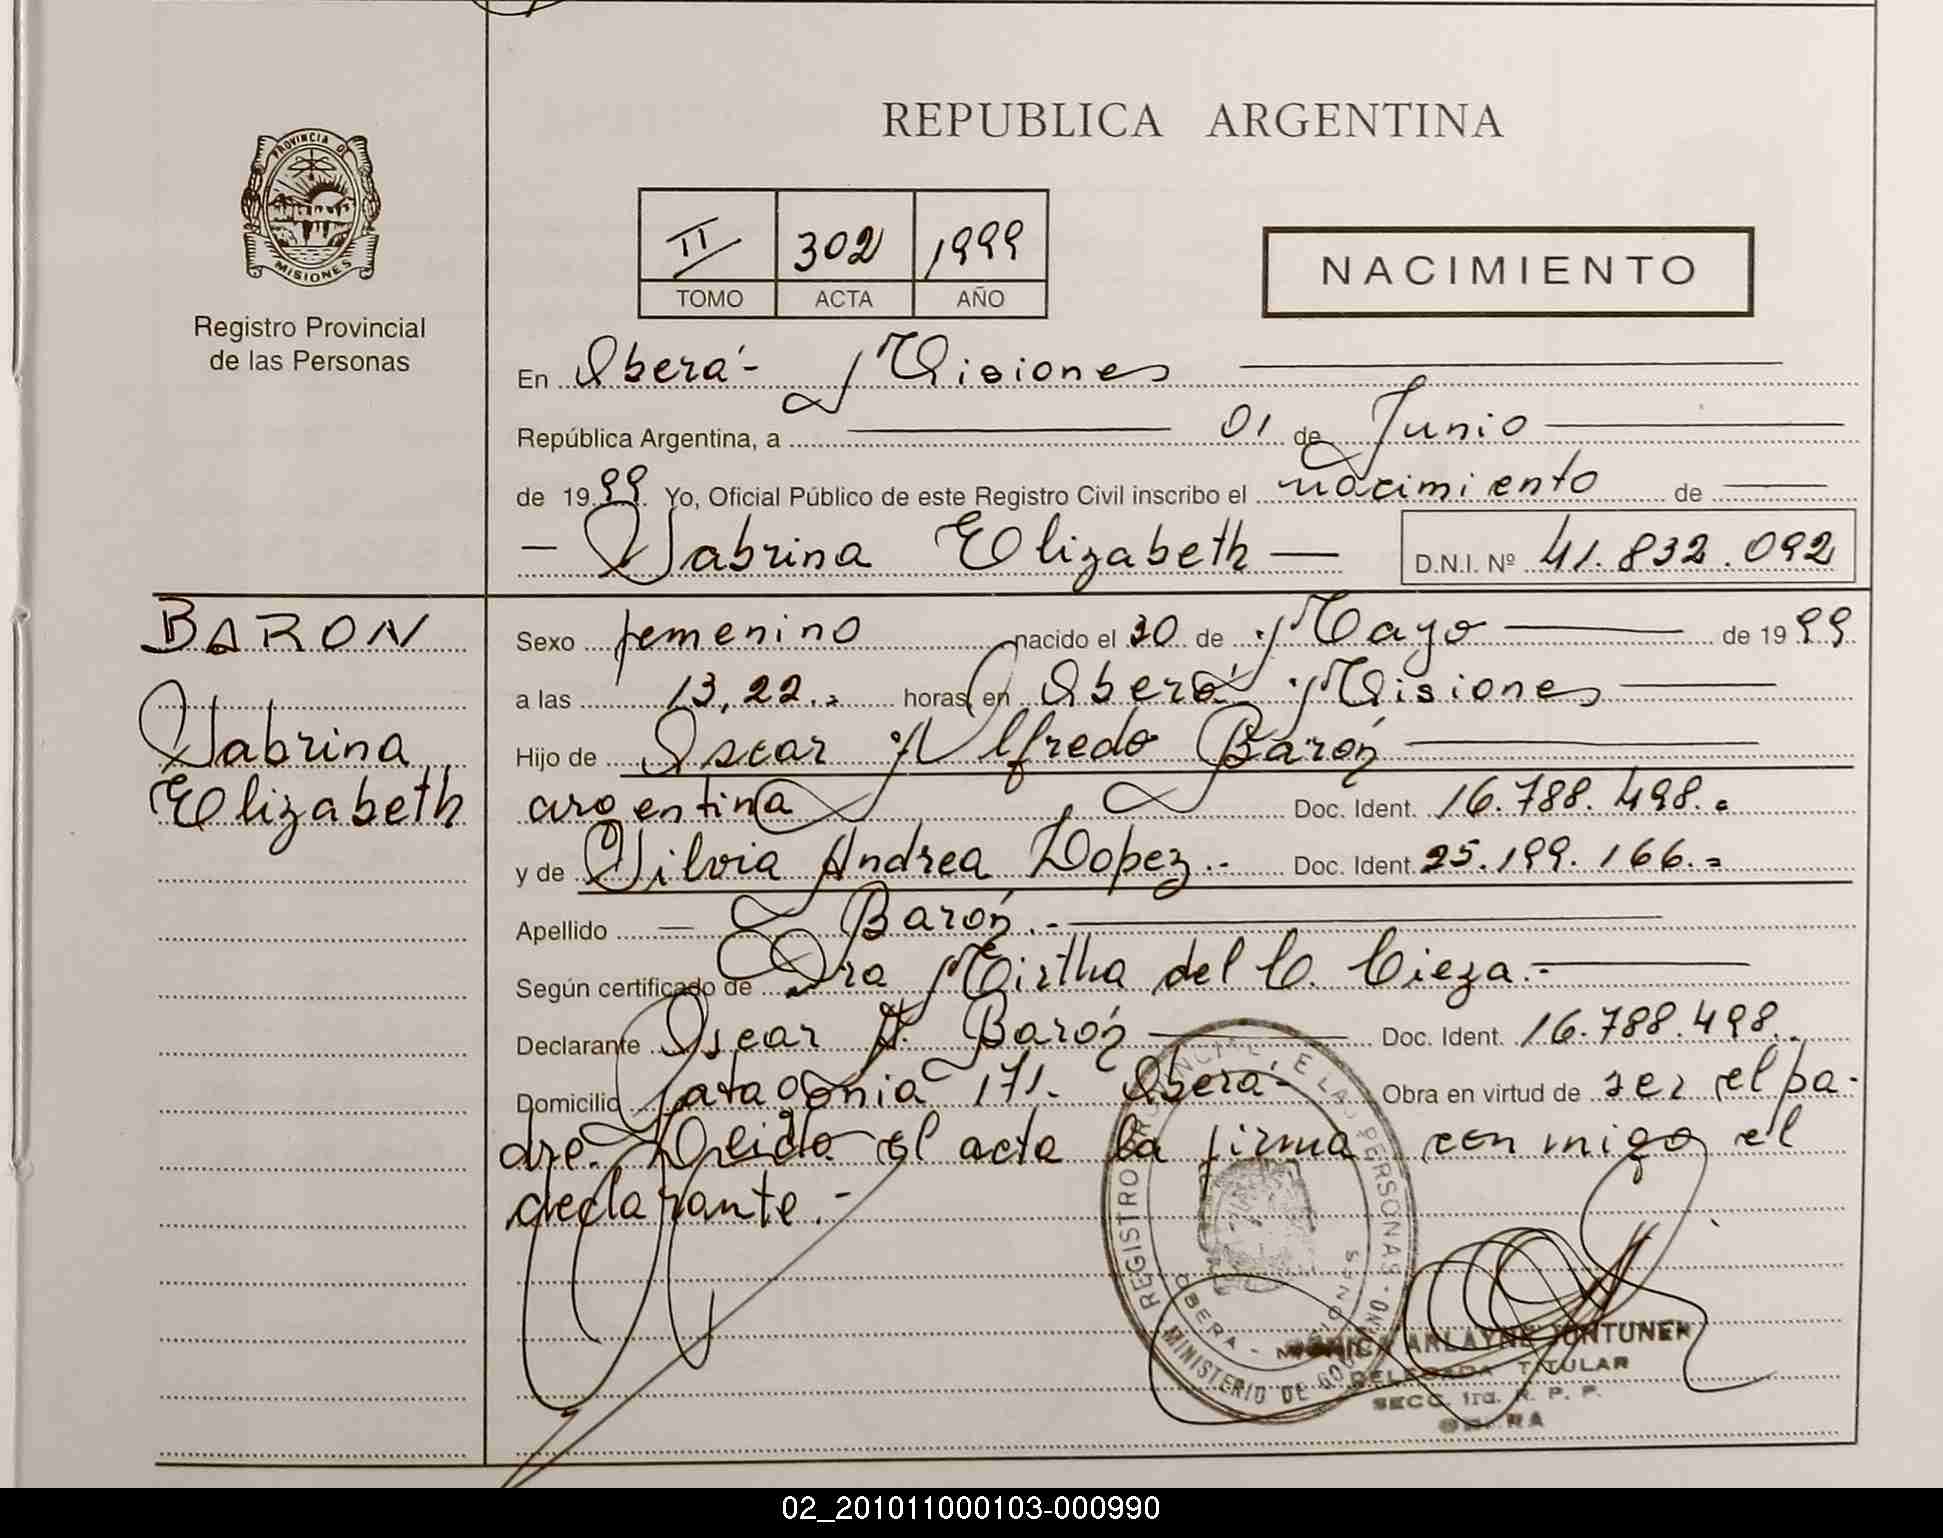 REPUBLICA ARGENTINA
PROVINCIA DE
MISIONES
Registro Provincial
de las Personas
II 302 1999
TOMO ACTA AÑO
NACIMIENTO
En Oberá - Misiones
República Argentina, a 01 de Junio
de 1999 Yo, Oficial Público de este Registro Civil inscribo el nacimiento de
Sabrina Elizabeth D.N.I. Nº 41.832.092
BARON
Sabrina
Elizabeth
Sexo femenino nacido el 30 de Mayo de 1999
a las 13,22.- horas en Oberá Misiones
Hijo de Oscar Alfredo Barón
argentina Doc. Ident. 16.788.498.-
y de Silvia Andrea Lopez.- Doc. Ident. 25.199.166.=
Apellido Barón.-
Según certificado de Dra Mirtha del C. Cieza.-
Declarante Oscar A. Barón Doc. Ident. 16.788.498.
Domicilio Patagonia 171. Oberá- Obra en virtud de ser el pa-
dre. Leida el acta la firma con migo el
declarante.-
REGISTRO PROVINCIAL DE LAS PERSONAS
MINISTERIO DE GOB
OBERA - MISIONES
MONICA ARLAYNE
DELEGADA TITULAR
SECC. 1ra. R. P. P.
OBERA
02_201011000103-000990